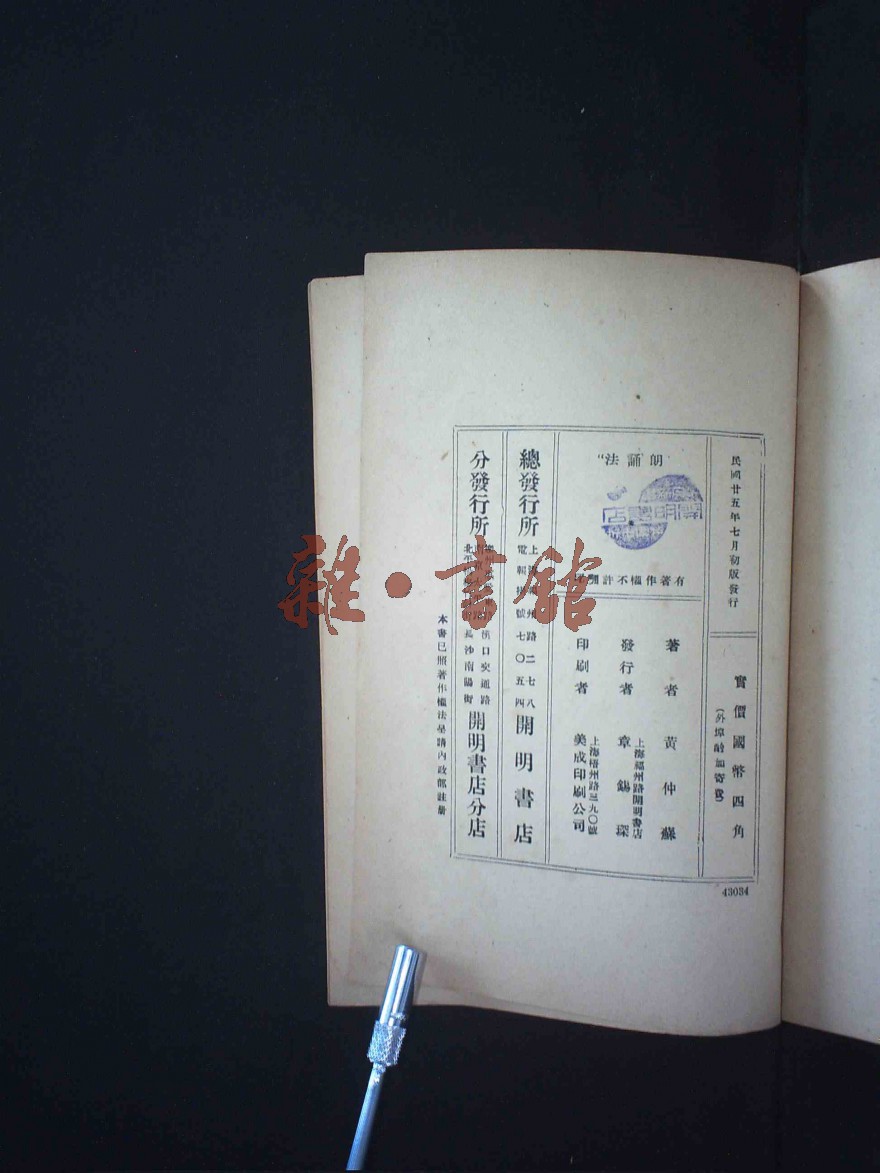 民國廿五年七月初版發行
實價國幣四角
(外埠酌加寄費)
朗誦法"
開明書店
有著作權不許翻印
著者 黃仲蘇
發行者 章錫琛
上海福州路開明書店
印刷者 美成印刷公司
上海梧州路三九〇號
總發行所
上海福州路二七八
電報掛號七〇五四
開明書店
分發行所
漢口交通路
長沙南陽街
開明書店分店
本書已照著作權法呈請內政部註冊
43034
雜·書館